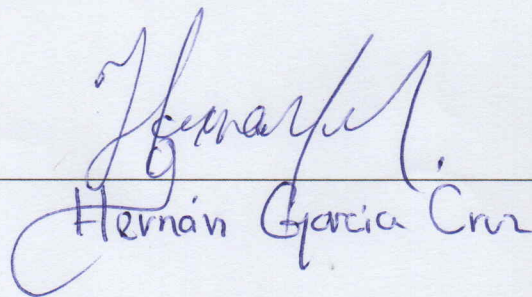 Hernán Garcia Cruz